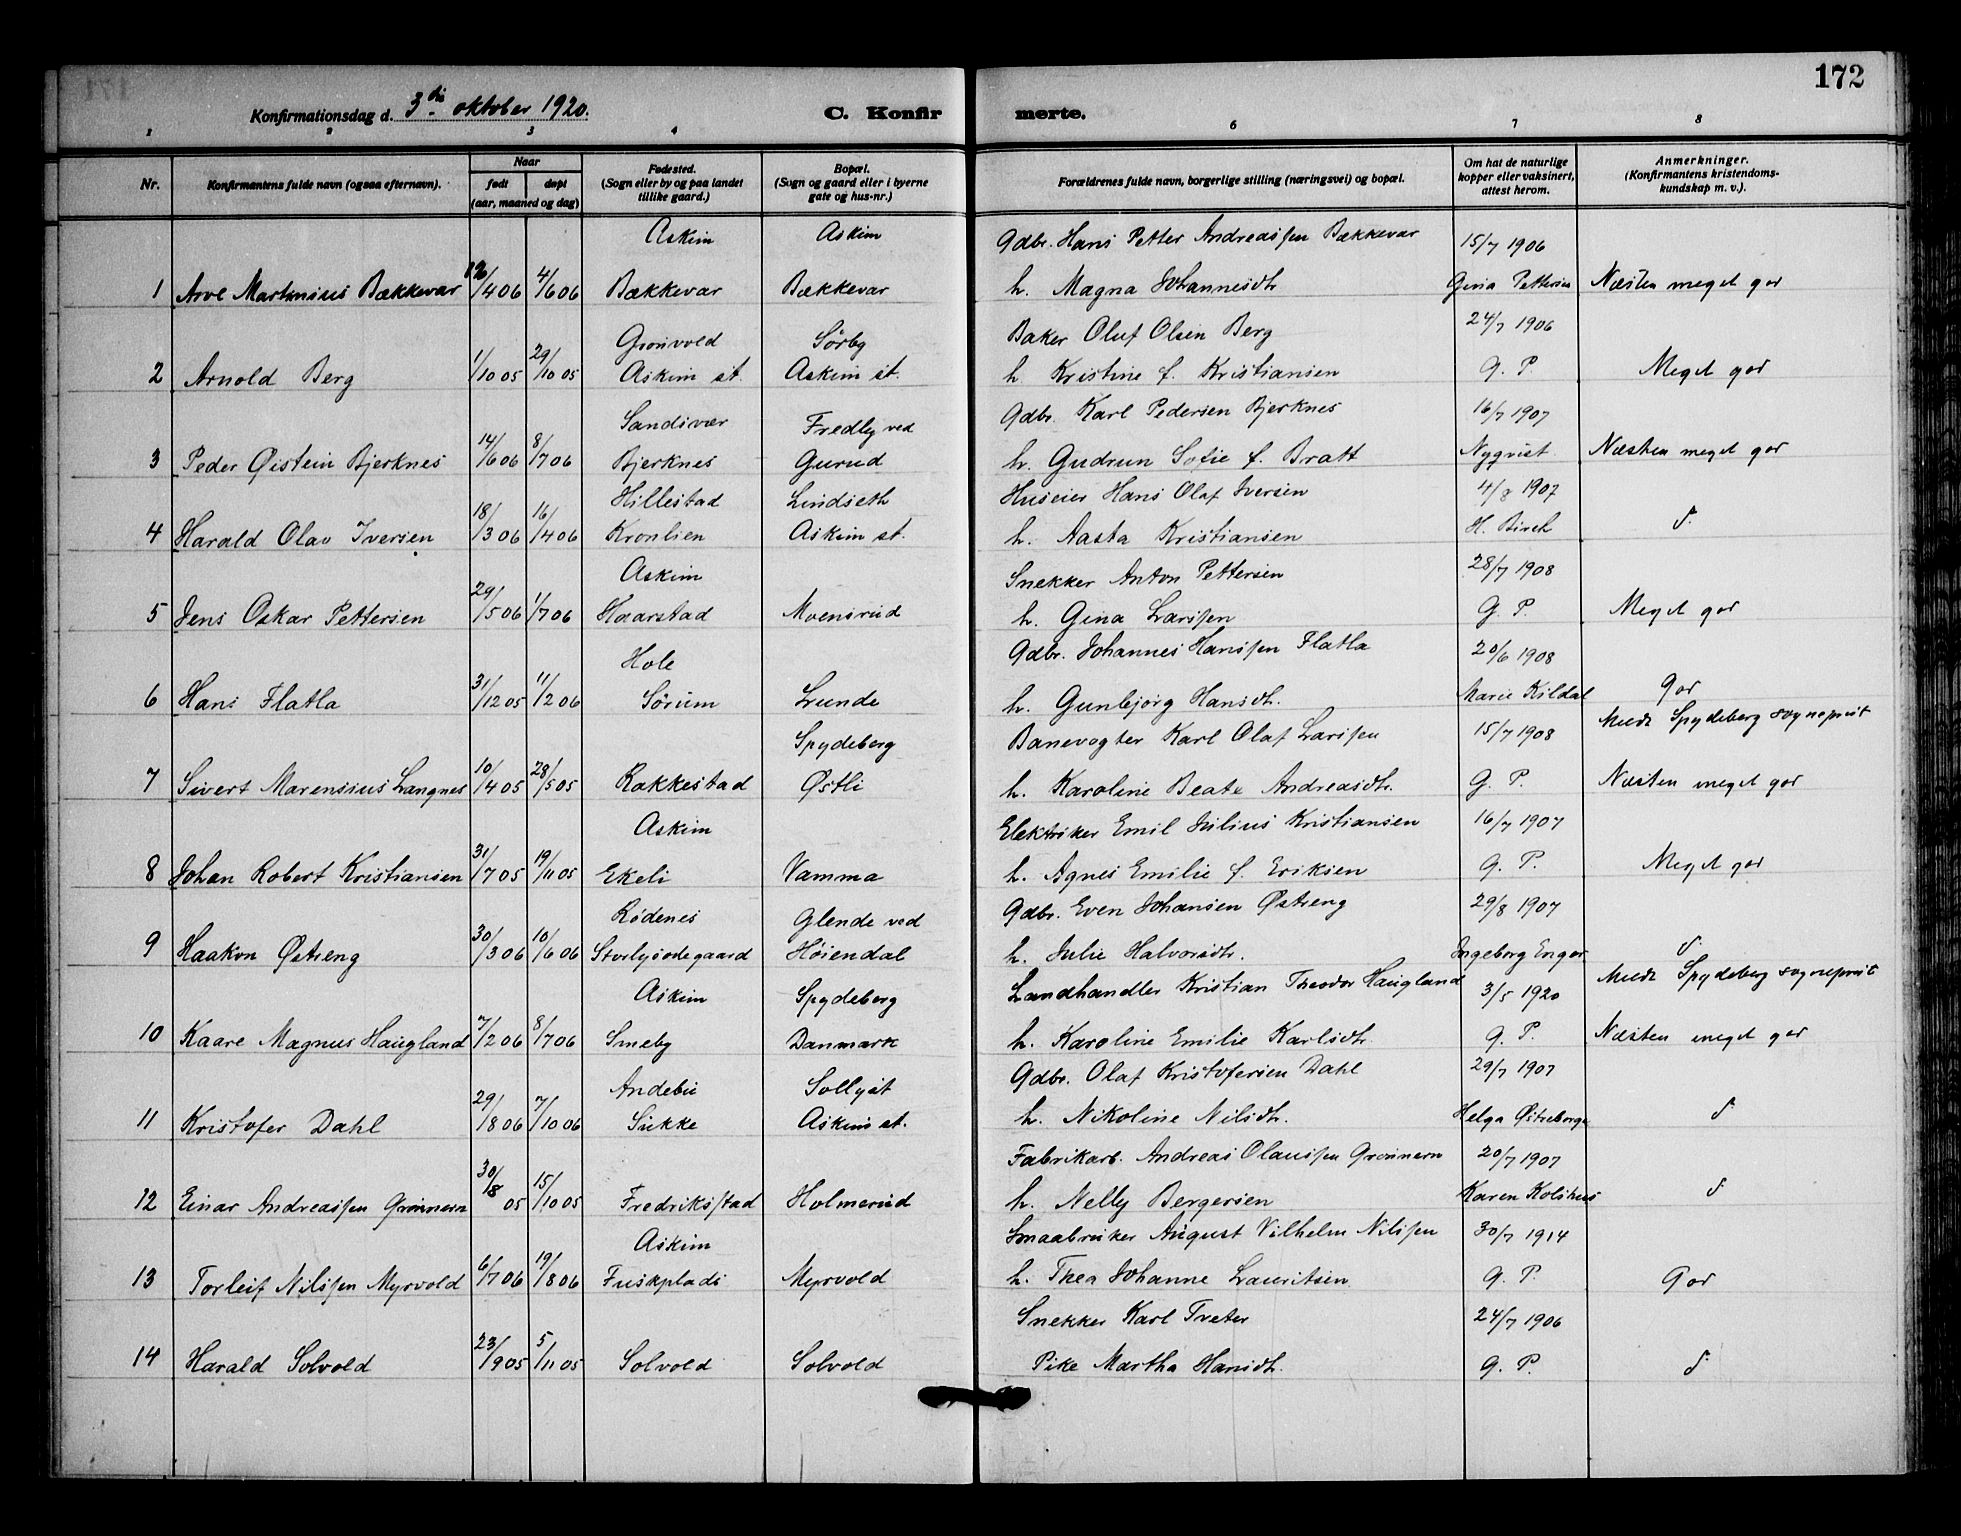 172
Konfirmationsdag d. 3die oktober 1920. C. Konfirmerte.
1 2 3 4 6 7 8
Nr. Konfirmantens fulde navn (ogsaa efternavn). Naar født døpt (aar, maaned og dag) Fødested. (Sogn eller by og paa landet tillike gaard.) Bopæl. (Sogn og gaard eller i byerne gate og hus-nr.) Forældrenes fulde navn, borgerlige stilling (næringsvei) og bopæl. Om hat de naturlige kopper eller vaksinert, attest herom. Anmerkninger. (Konfirmantens kristendomskundskap m. v.).
Askim Askim Gdbr. Hans Petter Andreassen Bækkevar 15/7 1906
1 Arve Martinius Bækkevar /4 06 4/6 06 Bækkevar Bækkevar h. Magna Johannesdtr Gina Pettersen Næsten meget god
Grønvold Sørby Baker Oluf Olsen Berg 24/7 1906
2 Arnold Berg 1/10 05 29/10 05 Askim st. Askim st. h. Kristine f. Kristiansen G. P. Meget god
Sandsvær Fredly ved Gdbr. Karl Pedersen Bjerknes 16/7 1907
3 Peder Øistein Bjerknes 14/6 06 8/7 06 Bjerknes Gurud h. Gudrun Sofie f. Bratt Nyqvist Næsten meget god
Hillestad Lindseth Huseier Hans Olaf Iversen 4/8 1907
4 Harald Olav Iversen 18/3 06 16/4 06 Kronlien Askim st. h. Aasta Kristiansen H. Birch
Askim Snekker Anton Pettersen 28/7 1908
5 Jens Oskar Pettersen 29/5 06 1/7 06 Haarstad Moensrud h. Gina Larssen G. P. Meget god
Hole Gdbr. Johannes Hanssen Flatla 20/6 1908
6 Hans Flatla 31/12 05 11/2 06 Sørum Lunde h. Gunbjørg Hansdtr. Marie Kildal God
Spydeberg Banevogter Karl Olaf Larssen 15/7 1908 Meldt Spydeberg sogneprest
7 Sivert Marensius Langnes 10/4 05 28/5 05 Rakkestad Østli h. Karoline Beate Andreasdtr. G. P. Næsten meget god
Askim Elektriker Emil Julius Kristiansen 16/7 1907
8 Johan Robert Kristiansen 31/7 05 19/11 05 Ekeli Vamma h. Agnes Emilie f. Eriksen G. P. Meget god
Rødenes Glende ved Gdbr. Even Johansen Østreng 29/8 1907
9 Haakon Østreng 30/3 06 10/6 06 Høiendal h. Julie Halvorsdtr. Ingeborg Enger
Askim Spydeberg Landhandler Kristian Theodor Haugland 3/5 1920 Meldt Spydeberg sogneprest
10 Kaare Magnus Haugland 7/2 06 8/7 06 Smeby Danmark h. Karoline Emilie Karlsdtr. G. P. Næsten meget god
Andebu Sollyst Gdbr. Olaf Kristofersen Dahl 29/7 1907
11 Kristofer Dahl 29/8 06 7/10 06 Sukke Askim st. h. Nikoline Nilsdtr. Helga
Fabrikarb. Andreas Olaussen Grønnern 20/7 1907
12 Einar Andreassen Grønnern 30/8 05 15/10 05 Fredriksstad Holmerud h. Nelly Bergersen Karen Kolshus
Askim Smaabruker August Vilhelm Nilssen 30/7 1914
13 Torleif Nilssen Myrvold 6/7 06 19/8 06 Fuskplads Myrvold h. Thea Johanne Lauritsen G. P. God
Snekker Karl Tveter 24/7 1906
14 Harald Solvold 23/9 05 5/11 05 Solvold Solvold Pike Martha Hansdtr. G. P.